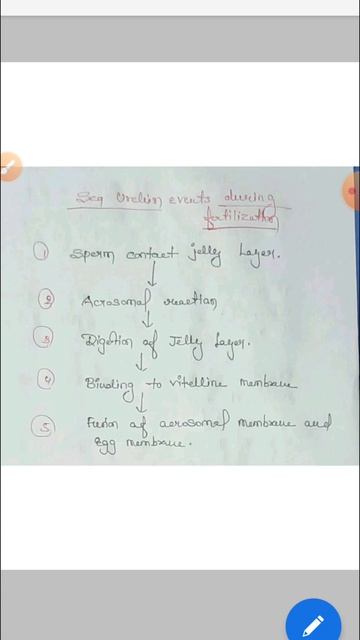 Seq Urchin events during
fertilization
① Sperm contact jelly Layer.
② Acrosomal reaction
③ Digetion of Jelly Layer.
④ Binding to vitelline membrane
⑤ Fusion of acrosomal membrane and
egg membrane.